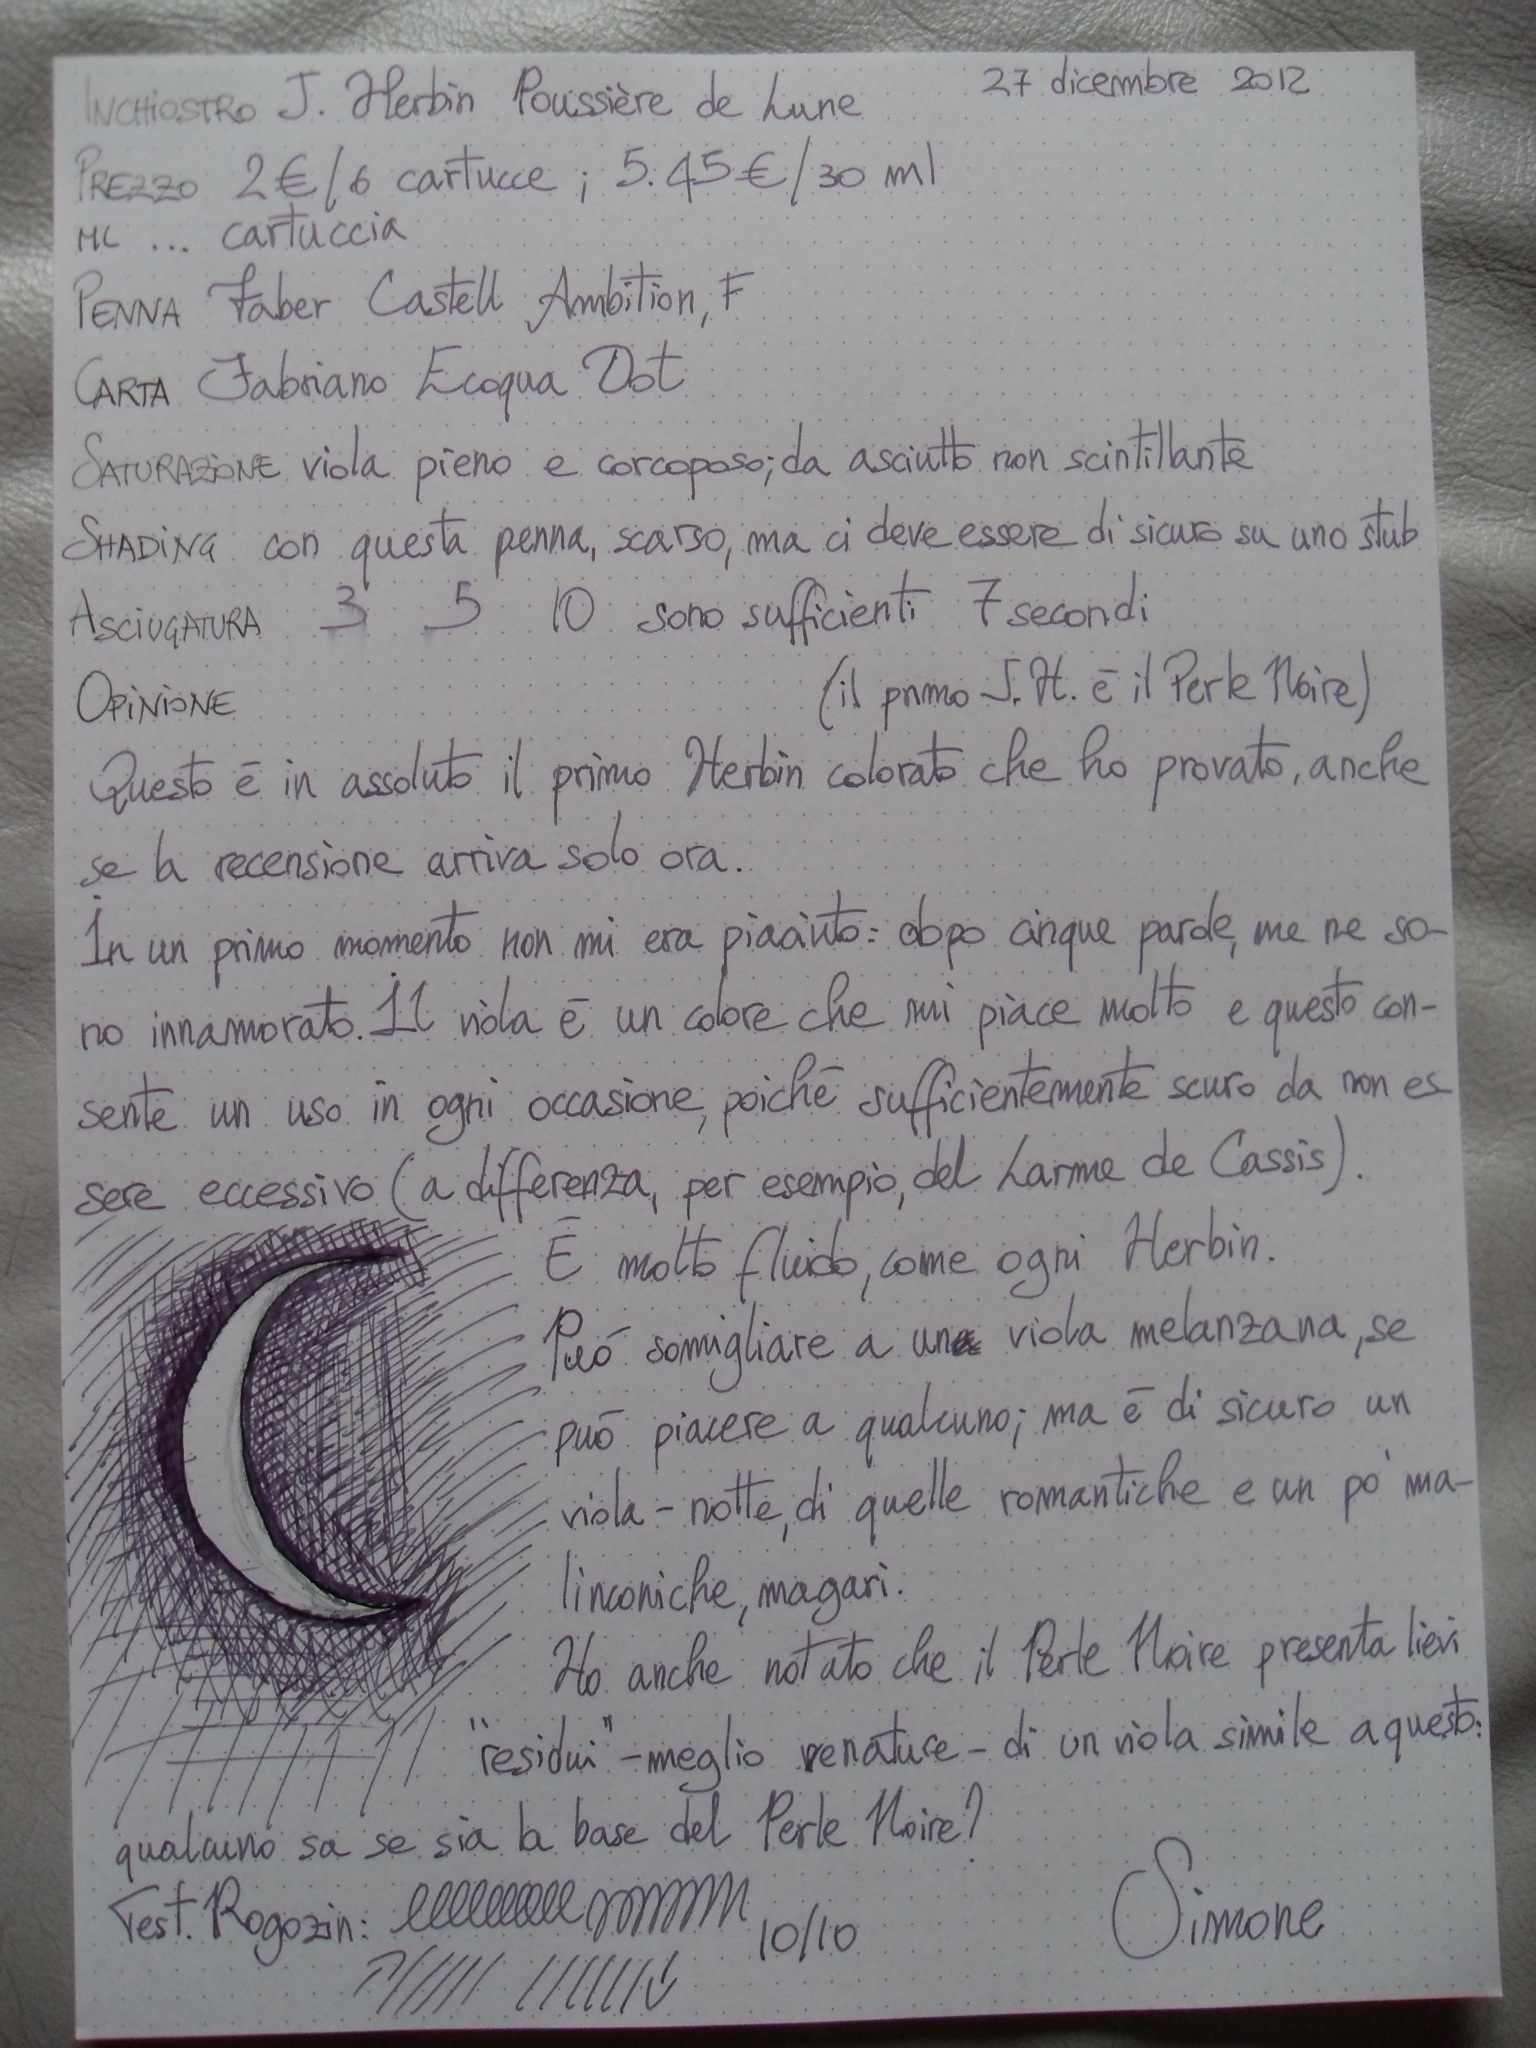 INCHIOSTRO J. Herbin Poussière de Lune 27 dicembre 2012
PREZZO 2€/6 cartucce ; 5.45€/30 ml
ML ... cartuccia
PENNA Faber Castell Ambition, F
CARTA Fabriano Ecoqua Dot
SATURAZIONE viola pieno e corcoposo; da asciutto non scintillante
SHADING con questa penna, scarso, ma ci deve essere di sicuro su uno stub
ASCIUGATURA 3 5 10 sono sufficienti 7 secondi
OPINIONE (il primo J.H. è il Perle Noire)
Questo è in assoluto il primo Herbin colorato che ho provato, anche
se la recensione arriva solo ora.
In un primo momento non mi era piaciuto: dopo cinque parole, me ne so-
no innamorato. Il viola è un colore che mi piace molto e questo con-
sente un uso in ogni occasione, poiché sufficientemente scuro da non es
sere eccessivo (a differenza, per esempio, del Larme de Cassis).
È molto fluido, come ogni Herbin.
Può somigliare a un viola melanzana, se
può piacere a qualcuno; ma è di sicuro un
viola-notte, di quelle romantiche e un po' ma-
linconiche, magari.
Ho anche notato che il Perle Noire presenta lievi
"residui" - meglio venature - di un viola simile a questo:
qualcuno sa se sia la base del Perle Noire?
Test Rogozin: 10/10
Simone